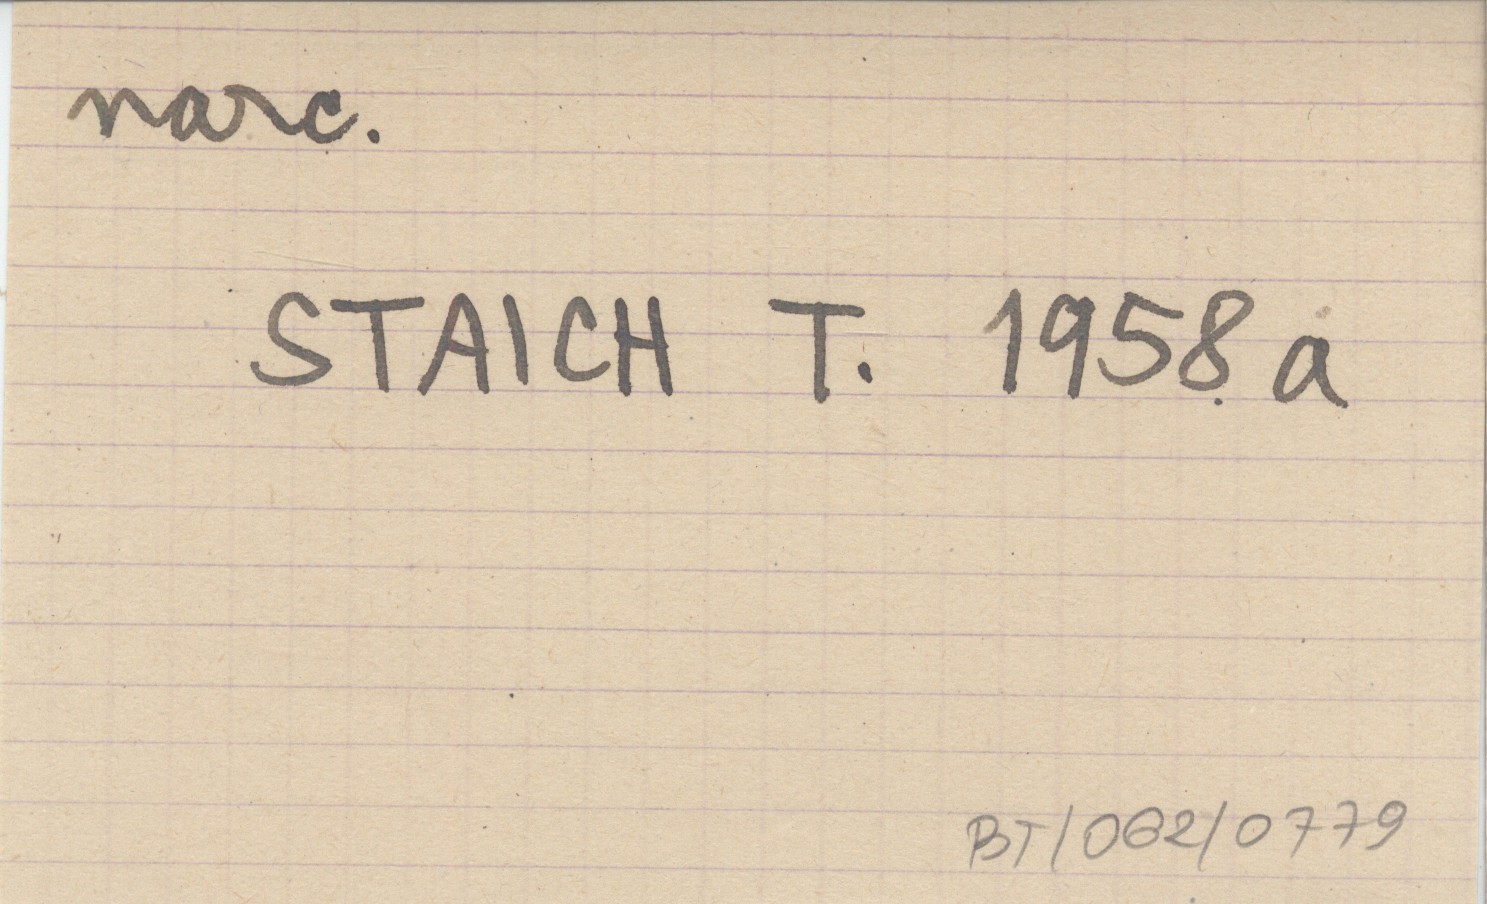 narc.
STAICH T. 1958 a
BT/062/0779